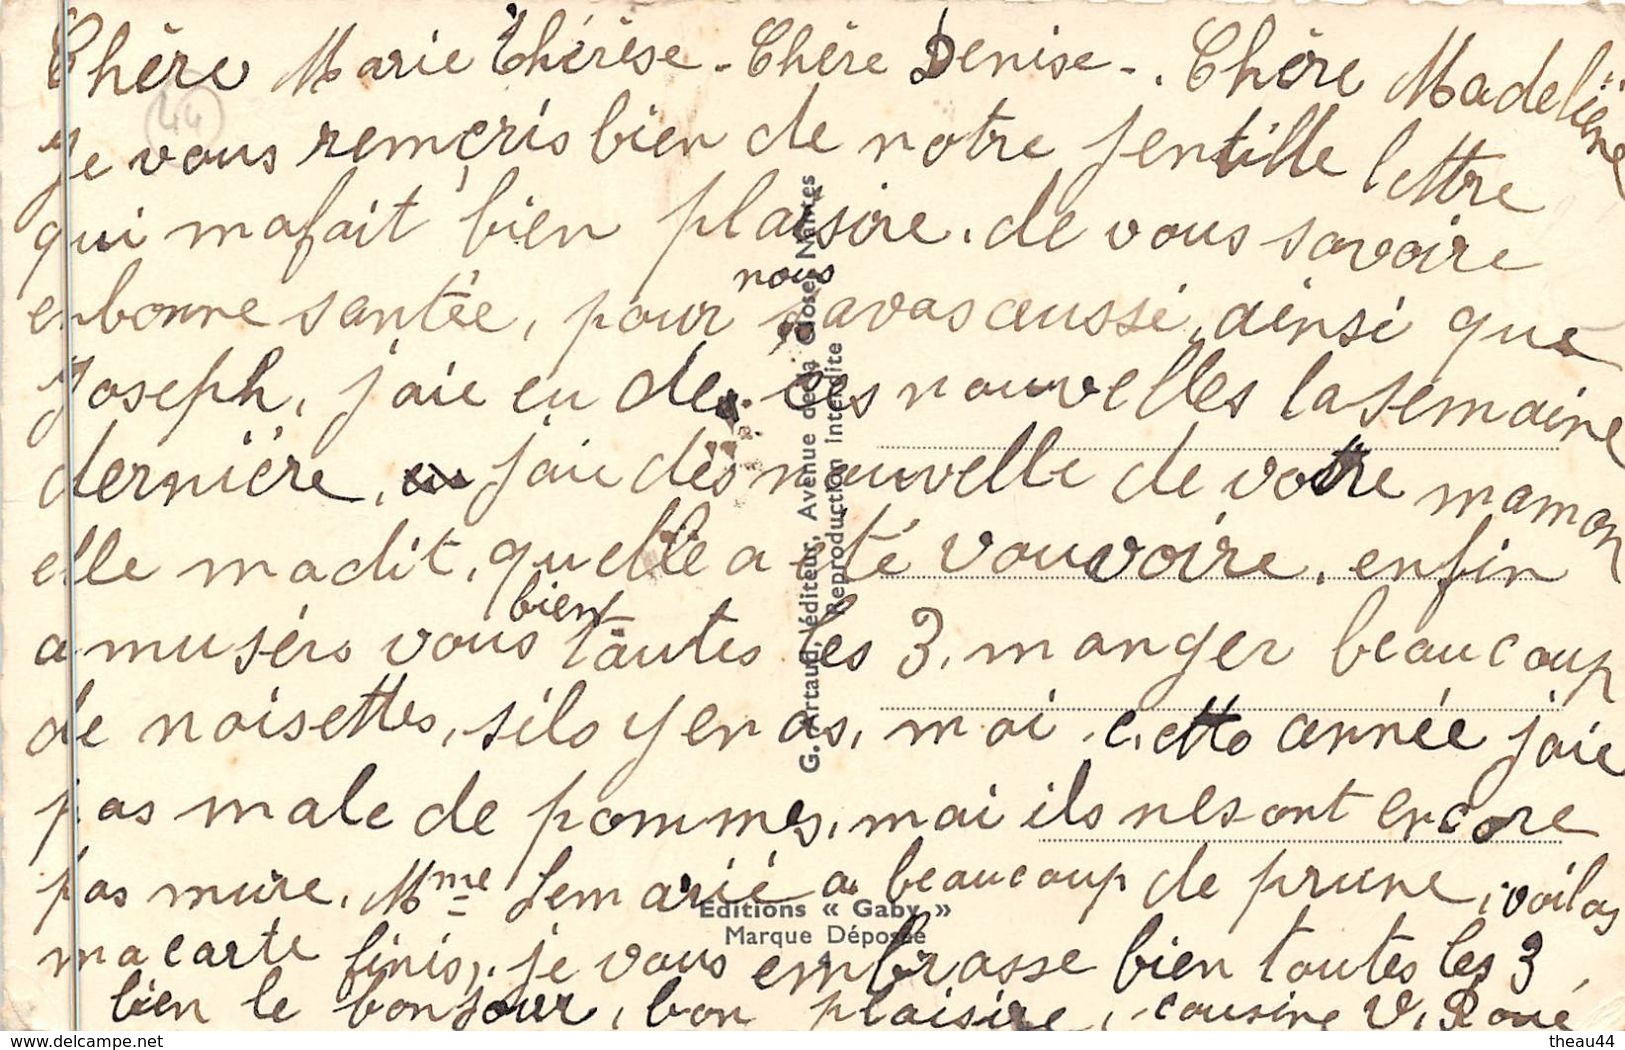 Chère Marie Thérèse - Chère Denise - . Chère Madeleine
44
Je vous remerçris bien de notre jentille lettre
qui mafait bien plaisire. de vous savoire
enbonne santée, pour nous savas aussi, ainsi que
Joseph, jaie eu des ces nouvelles la semaine
dernière, jaie des nouvelle de votre maman
elle madit, quelle a été vouvoire. enfin
amusérs vous bien toutes les 3. manger beaucoup
de noisettes, sils y en as, moi cette année jaie
pas male de pommes, mai ils nesont encore
pas mure. Mme Lemarié a beaucoup de prune, voilas
ma carte finis, je vous embrasse bien toutes les 3,
bien le bonjour, bon plaisire, cousine V.
G. Artaud, éditeur, Avenue de la Close, Nantes
Reproduction interdite
Editions « Gaby »
Marque Déposée
www.delcampe.net
theau44